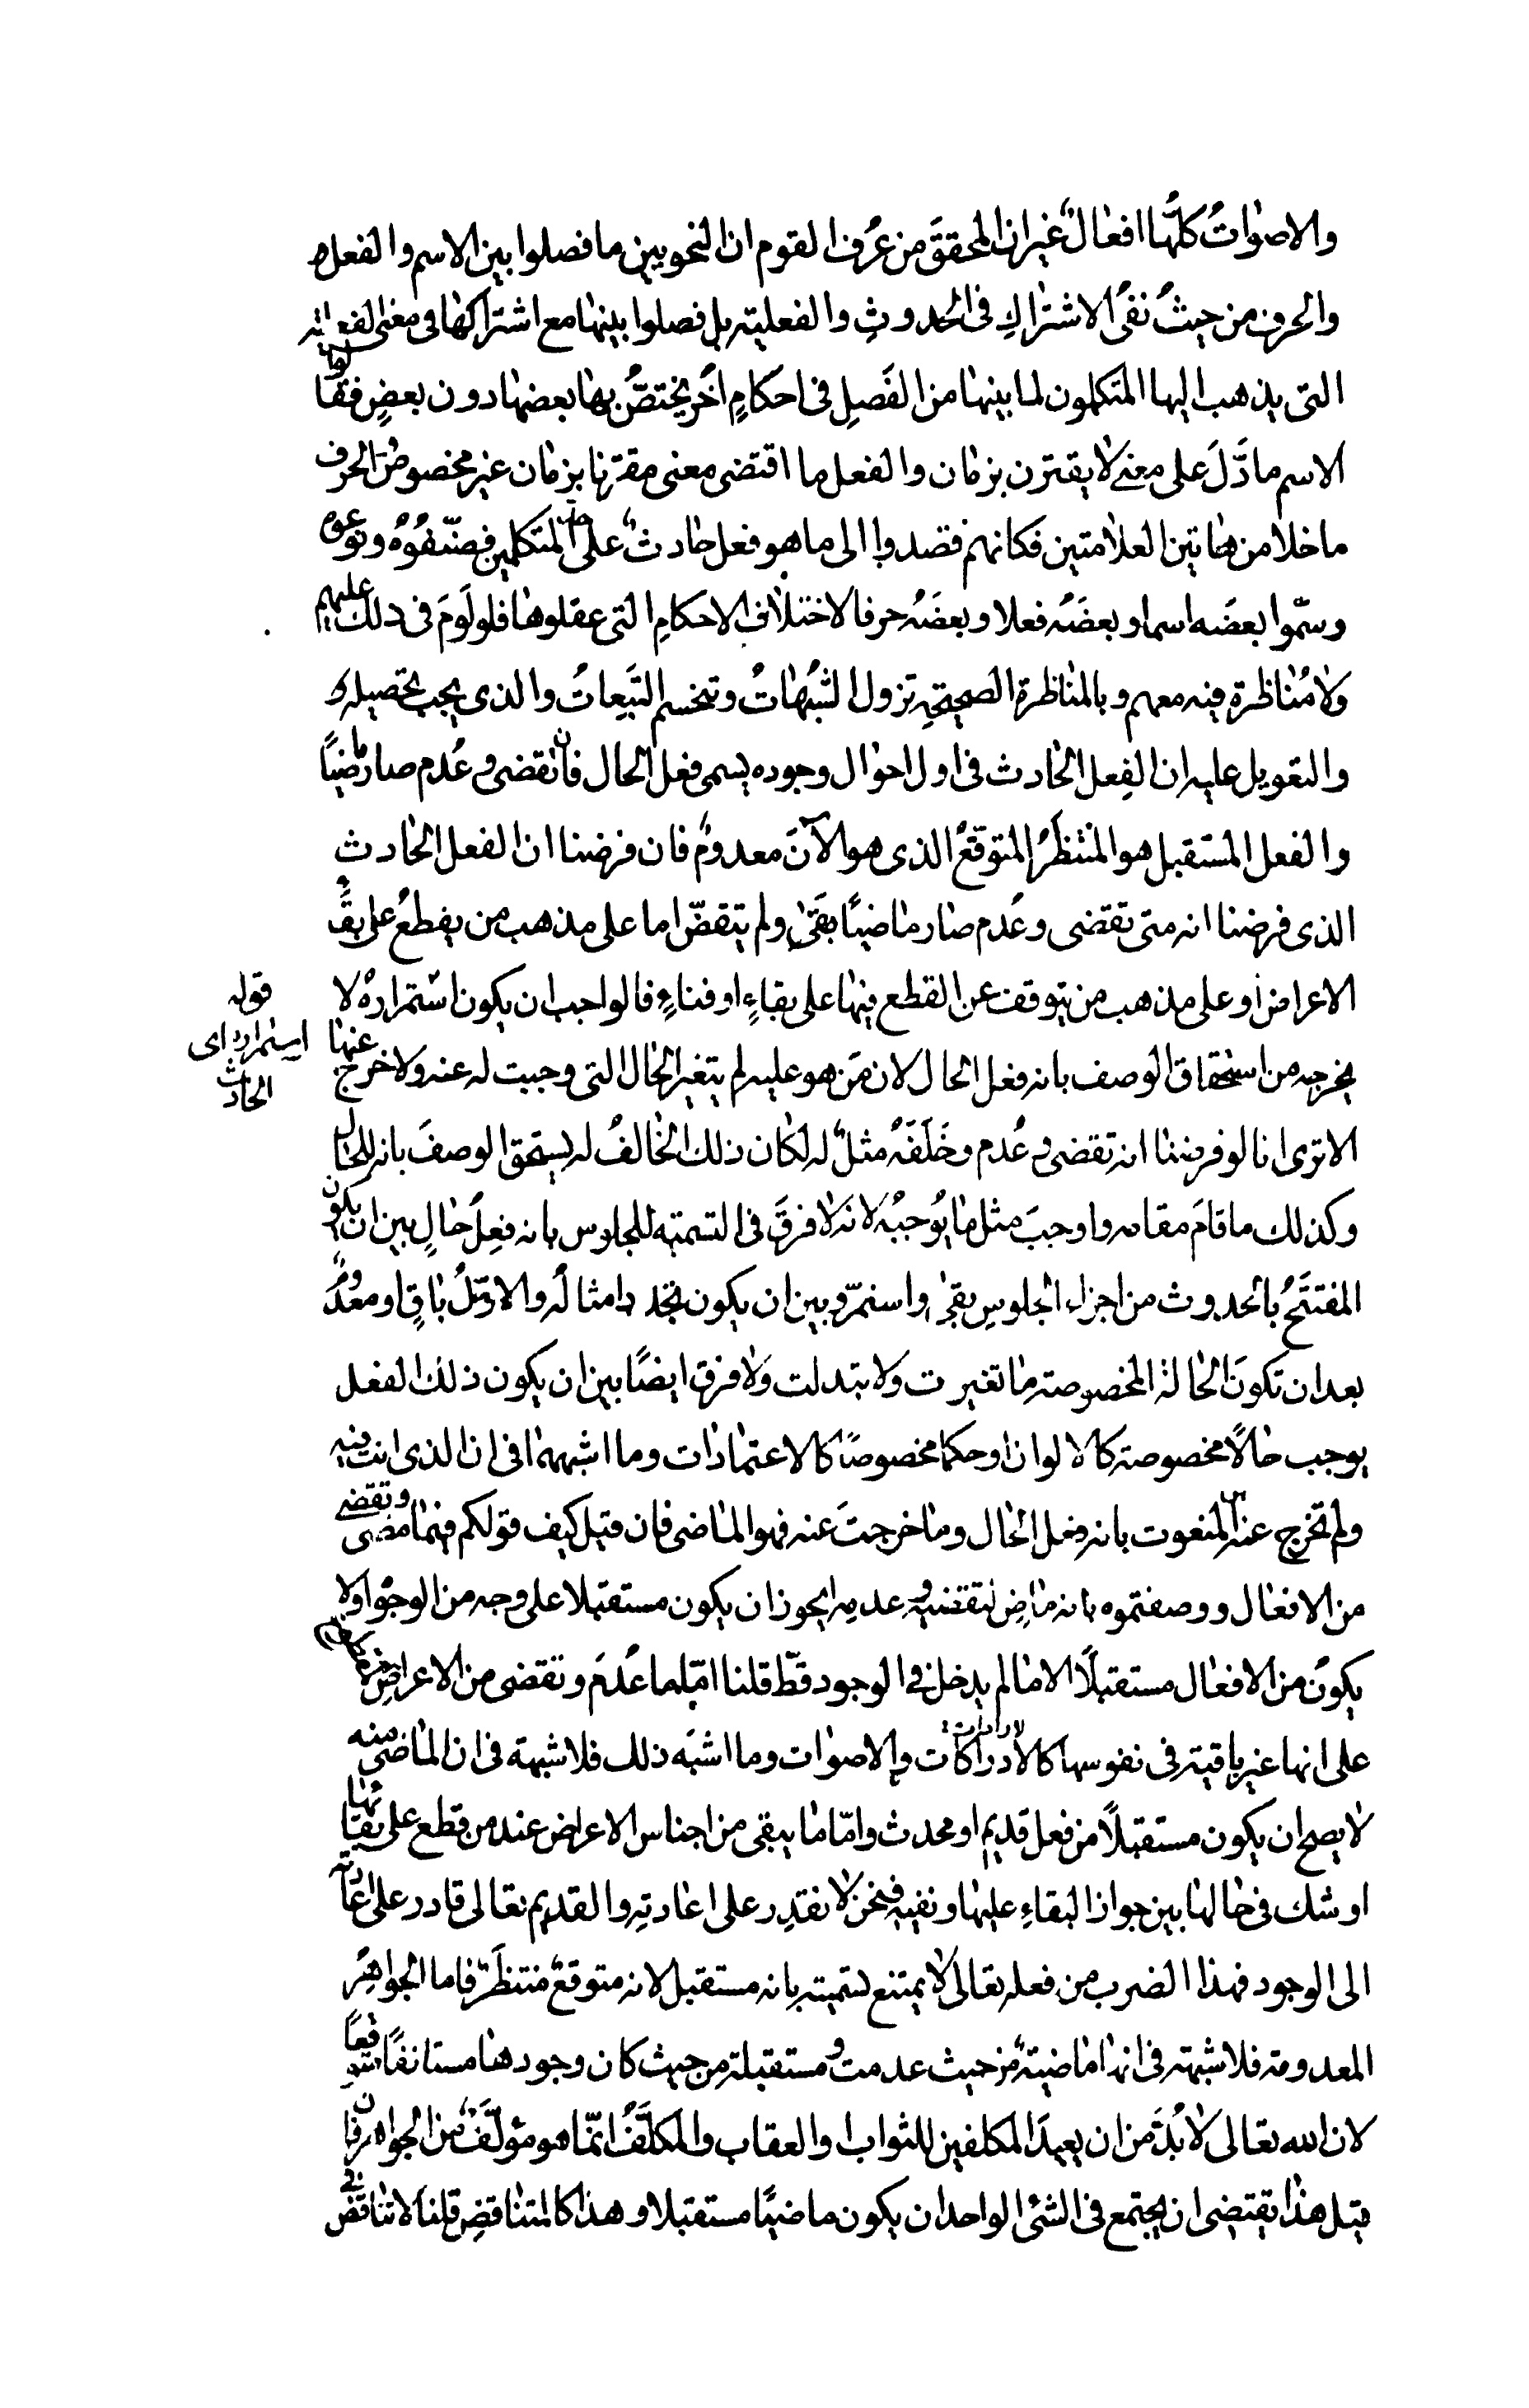 والاصوات كلُّها افعالٌ غير ان المحققَ من عُرف القوم ان النحويين ما فصلوا بين الاسم والفعل
والحرف من حيثُ نفىُ الاشتراكِ فى الحدوثِ والفعلية بل فصلوا بينها مع اشتراكها فى معنى الفعلية
التى يذهب اليها المتكلمون لما بينها من الفَصلِ فى احكامٍ اُخر يختصُّ بها بعضها دون بعضٍ فقالوا
الاسم ما دَّلَ على معنى لا يقترن بزمان والفعل ما اقتضى معنى مقترنا بزمان غير مخصوص والحرف
ما خلا من هاتين العلامتين فكانهم قصدوا الى ما هو فعل حادثٌ على المتكلمين فصنّفُوُه ونوعوه
وسمّوا بعضَه اسما وبعضَه فعلا وبعضَه حرفا لاختلاف الاحكامِ التى عقلوها فلو لَومَ فى ذلك عليهم
ولا مُناظرة فيه معهم وبالمناظرة الصحيحةِ تزول الشُبُهاتُ وتنحسم التَبِعاتُ والذى يجب تحصيله
والتعويل عليه ان الفِعل الحادث فى اول احوال وجوده يسمى فعل الحال فان تقضى وعُدم صار ماضيًا
والفعل المستقبل هو المنتظَرُ المتوقّعُ الذى هو الآنَ معدومٌ فان فرضنا ان الفعل الحادث
الذى فرضنا انه متى تقضى وعُدم صار ماضيًا بقَى ولم يتقضّ اما على مذهب من يقطعُ على بقاء
الاعراض او على مذهب من يتوقف عن القطع فيها على بقاءٍ او فناءٍ فالواجب ان يكون استمراره لا
يخرجه من استحقاق الوصف بانه فعل الحال لان مَن هو عليه لم يتغير الحال التى وجبت له عنه ولا خرج عنها
قوله
استمراره اى
الحادث
الا ترى انا لو فرضنا انه تقضى وعُدم وخَلَفَهُ مثلٌ له لكان ذلك الخالفُ له يستحق الوصفَ بانه للحال
وكذلك ما قامَ مقامه واوجبَ مثل ما يُوجبُه لانه لا فرقَ فى التسمية للجلوس بانه فعِلُ حالٍ بين ان يكون
المفتتَحُ بالحدوث من اجزاء الجلوسِ بقى واستمرّ وبين ان يكون تجدد امثالُه والاوّلُ باقٍ او معدومٌ
بعد ان تكونَ الحالة المخصوصة ما تغيرت ولا تبدلت ولا فرق ايضًا بين ان يكون ذلك الفعل
يوجب حالًا مخصوصة كالالوان او حكما مخصوصًا كالاعتمادات وما اشبهها فى ان الذى انت فيه
ولم تخرج عنه المنعوت بانه فعل الحال وما خرجتَ عنه فهو الماضى فان قيل كيف قولكم فيما مضى وتقضى
من الافعال ووصفتموه بانه ماضٍ لتقضيه وعدمِه ايجوز ان يكون مستقبلا على وجه من الوجوه اولا
يكونُ من الافعال مستقبلًا الا ما لم يدخل فى الوجود قطّ قلنا امّا ما عُدمَ وتقضى من الاعراضِ
على انها غير باقية فى نفوسها كالارادات والادراكات والاصوات وما اشبَه ذلك فلا شبهة فى ان الماضى منه
لا يصح ان يكون مستقبلًا من فعل قديمٍ او محدث وامّا ما يبقى من اجناس الاعراض عند من قطع على بقائها
او شك فى حالها بين جواز البقاءِ عليها ونفيه فنحن لا نقدِر على اعادتِه والقديم تعالى قادر على اعادته
الى الوجود فهذا الضرب من فعله تعالى لا يمتنع تسميته بانه مستقبل لانه متوقعٌ منتظَرٌ فاما الجواهرُ
المعدومة فلا شبهة فى انها ماضيةٌ من حيث عدمت ومستقبلة من حيث كان وجودها مستانفًا متوقعًا
لان الله تعالى لا بُدَّ من ان يعيدَ المكلفين للثواب والعقاب والمكلَّفُ انمّا هو مؤلَّفٌ من الجواهر فان
قيل هذا يقتضى ان يجتمع فى الشئ الواحد ان يكون ماضيًا مستقبلا وهذا كالمتناقضِ قلنا لا تناقض فى